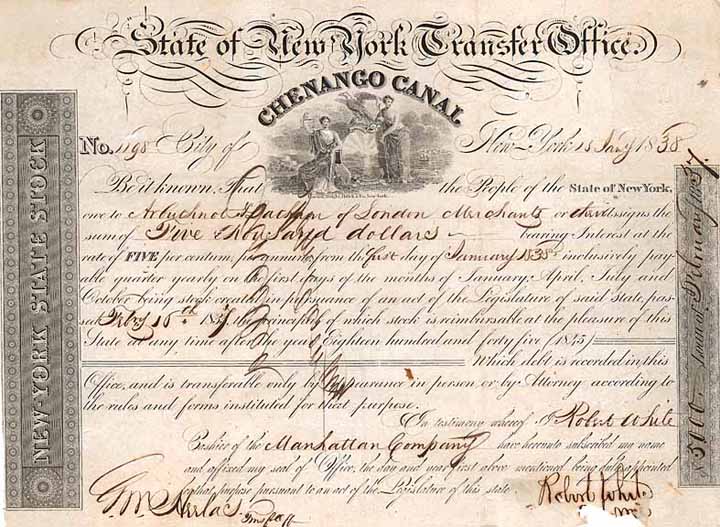 State of New York Transfer Office.
CHENANGO CANAL
No. 1198 City of New-York 18 Jany 1838
Be it known, That the People of the State of New York,
owe to Arbuthnot & of London Merchants or their assigns the
sum of Five thousand dollars bearing Interest at the
rate of FIVE per centum, per annum from the first day of January 1838 inclusively pay-
able quarter yearly on the first days of the months of January, April, July and
October being stock created in pursuance of an act of the Legislature of said state, pas-
sed the principal of which stock is reimbursable at the pleasure of this
State at any time after the year Eighteen hundred and forty five (1845)
Which debt is recorded in this
Office, and is transferable only by appearance in person or by Attorney according to
the rules and forms instituted for that purpose.
In testimony whereof I Robert White
Cashier of the Manhattan Company have hereunto subscribed my name
and affixed my seal of Office, the day and year first above mentioned being duly appointed
for that purpose pursuant to an act of the Legislature of this state
Robert White
NEW-YORK STATE STOCK
$5000 Issued February 1837.